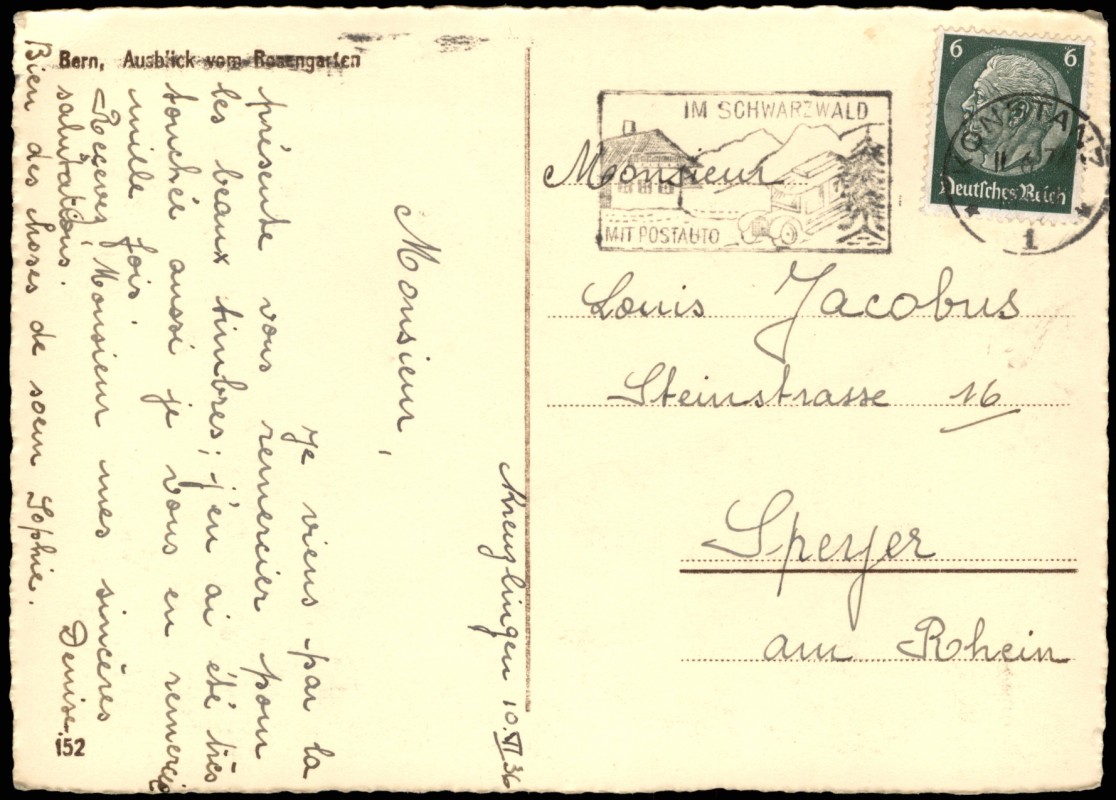 Bern, Ausblick vom Rosengarten
Kreuzlingen 10.VI 36
Monsieur,
Je viens par la
présente vous remercier pour
les beaux timbres; j'en ai été très
touchée aussi je vous en remercie
mille fois.
Recevez, Monsieur mes sincères
salutations. Denise.
Bien des choses de soeur Sophie.
152
IM SCHWARZWALD
MIT POSTAUTO
6 6
Deutsches Reich
KONSTANZ
1
Monsieur
Louis Jacobus
Steinstrasse 16
Speyer
am Rhein